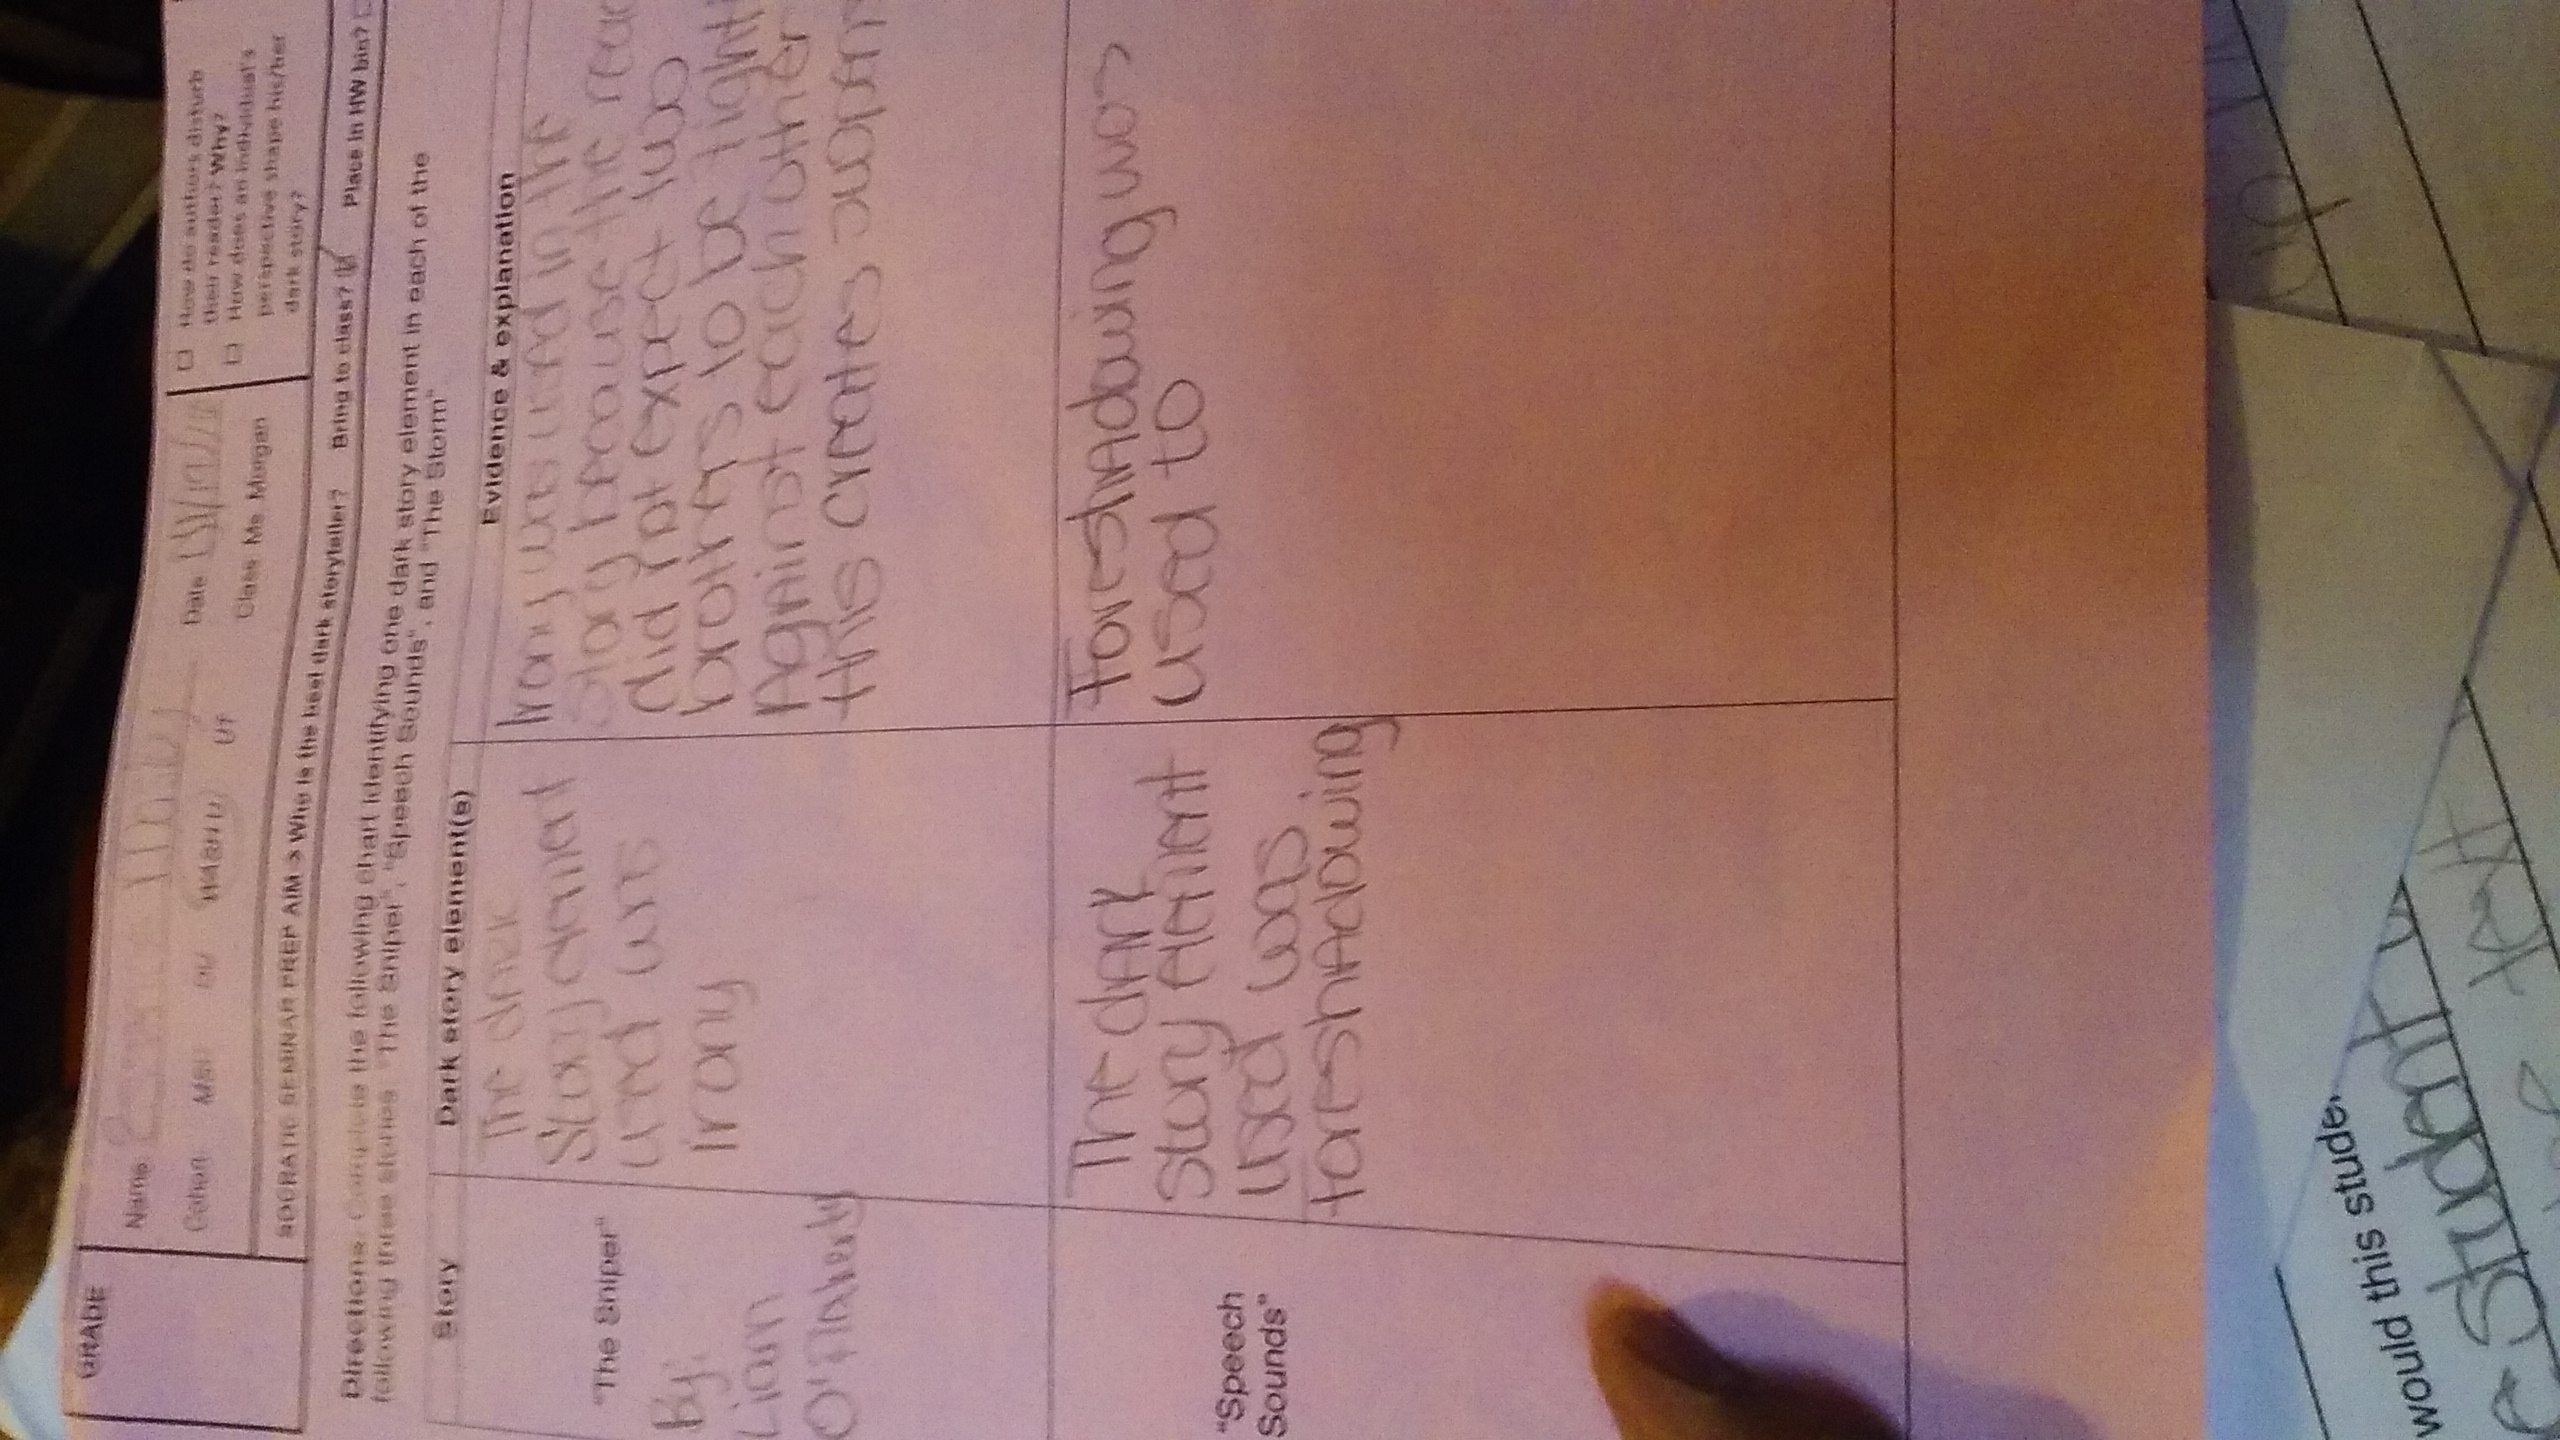 GRADE
Name:
Date
Cohort MSU OU WASHU UF
Class Ms. Morgan
☐ How do authors disturb
their reader? Why?
☐ How does an individual's
perspective shape his/her
dark story?
SOCRATIC SEMINAR PREP AIM → Who is the best dark storyteller? Bring to class? ☑ Place in HW bin? ☐
Directions: Complete the following chart identifying one dark story element in each of the
following three stories "The Sniper", "Speech Sounds", and "The Storm"
Story
Dark story element(s)
Evidence & explanation
"The Sniper"
By:
Liam
O'Flaherty
The dark
Story element
used was
irony
Irony was used in the
Story because the
did not expect two
brothers to be
Against each other
this creates
"Speech
Sounds"
The dark
story element
used was
foreshadowing
Foreshadowing was
used to
would this
student
text